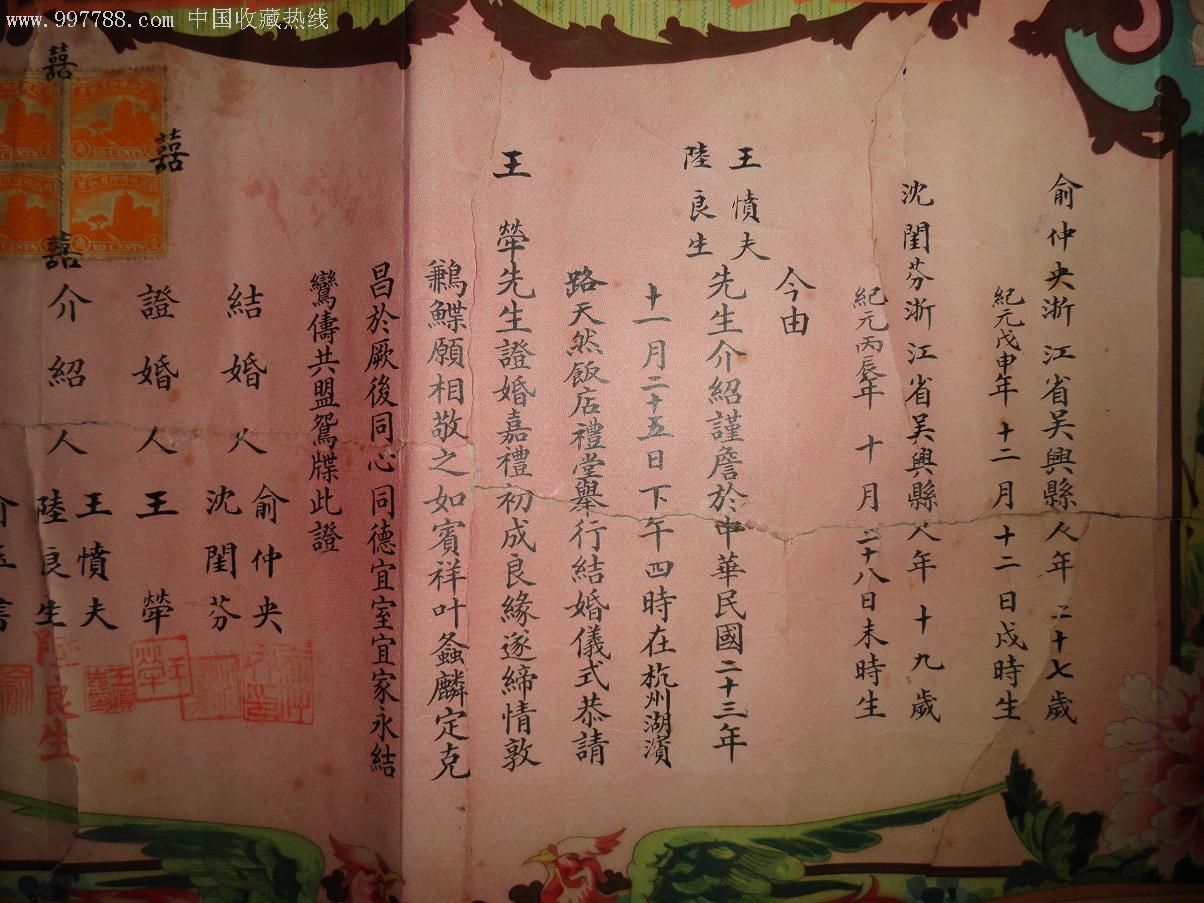 www.997788.com 中国收藏热线
俞仲央浙江省吴興縣人年二十七歲
紀元戊申年十二月十二日戌時生
沈閨芬浙江省吴興縣人年十九歲
紀元丙辰年十月二十八日未時生
今由
王憤夫
陸良生
先生介紹謹詹於中華民國二十三年
十一月二十五日下午四時在杭州湖濱
路天然飯店禮堂舉行結婚儀式恭請
王犖先生證婚嘉禮初成良緣遂締情敦
鶼鰈願相敬之如賓祥叶螽麟定克
昌於厥後同心同德宜室宜家永結
鸞儔共盟鴛牒此證
結婚人
俞仲央
沈閨芬
證婚人 王犖
介紹人
王憤夫
陸良生
囍
囍
囍
10 CENTS
10 CENTS
陸良生